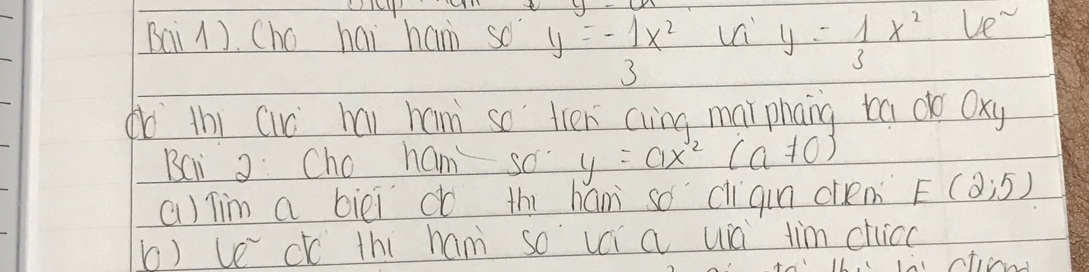 Bài 1). Cho hai hàm số y = -1/3 x² và y = 1/3 x² Vẽ
đồ thị của hai hàm số trên cùng mặt phẳng tọa độ Oxy
Bài 2: Cho hàm số y = ax² (a ≠ 0)
a) Tìm a biết đồ thị hàm số đi qua điểm E (2;5)
b) Vẽ đồ thị hàm số với a vừa tìm được